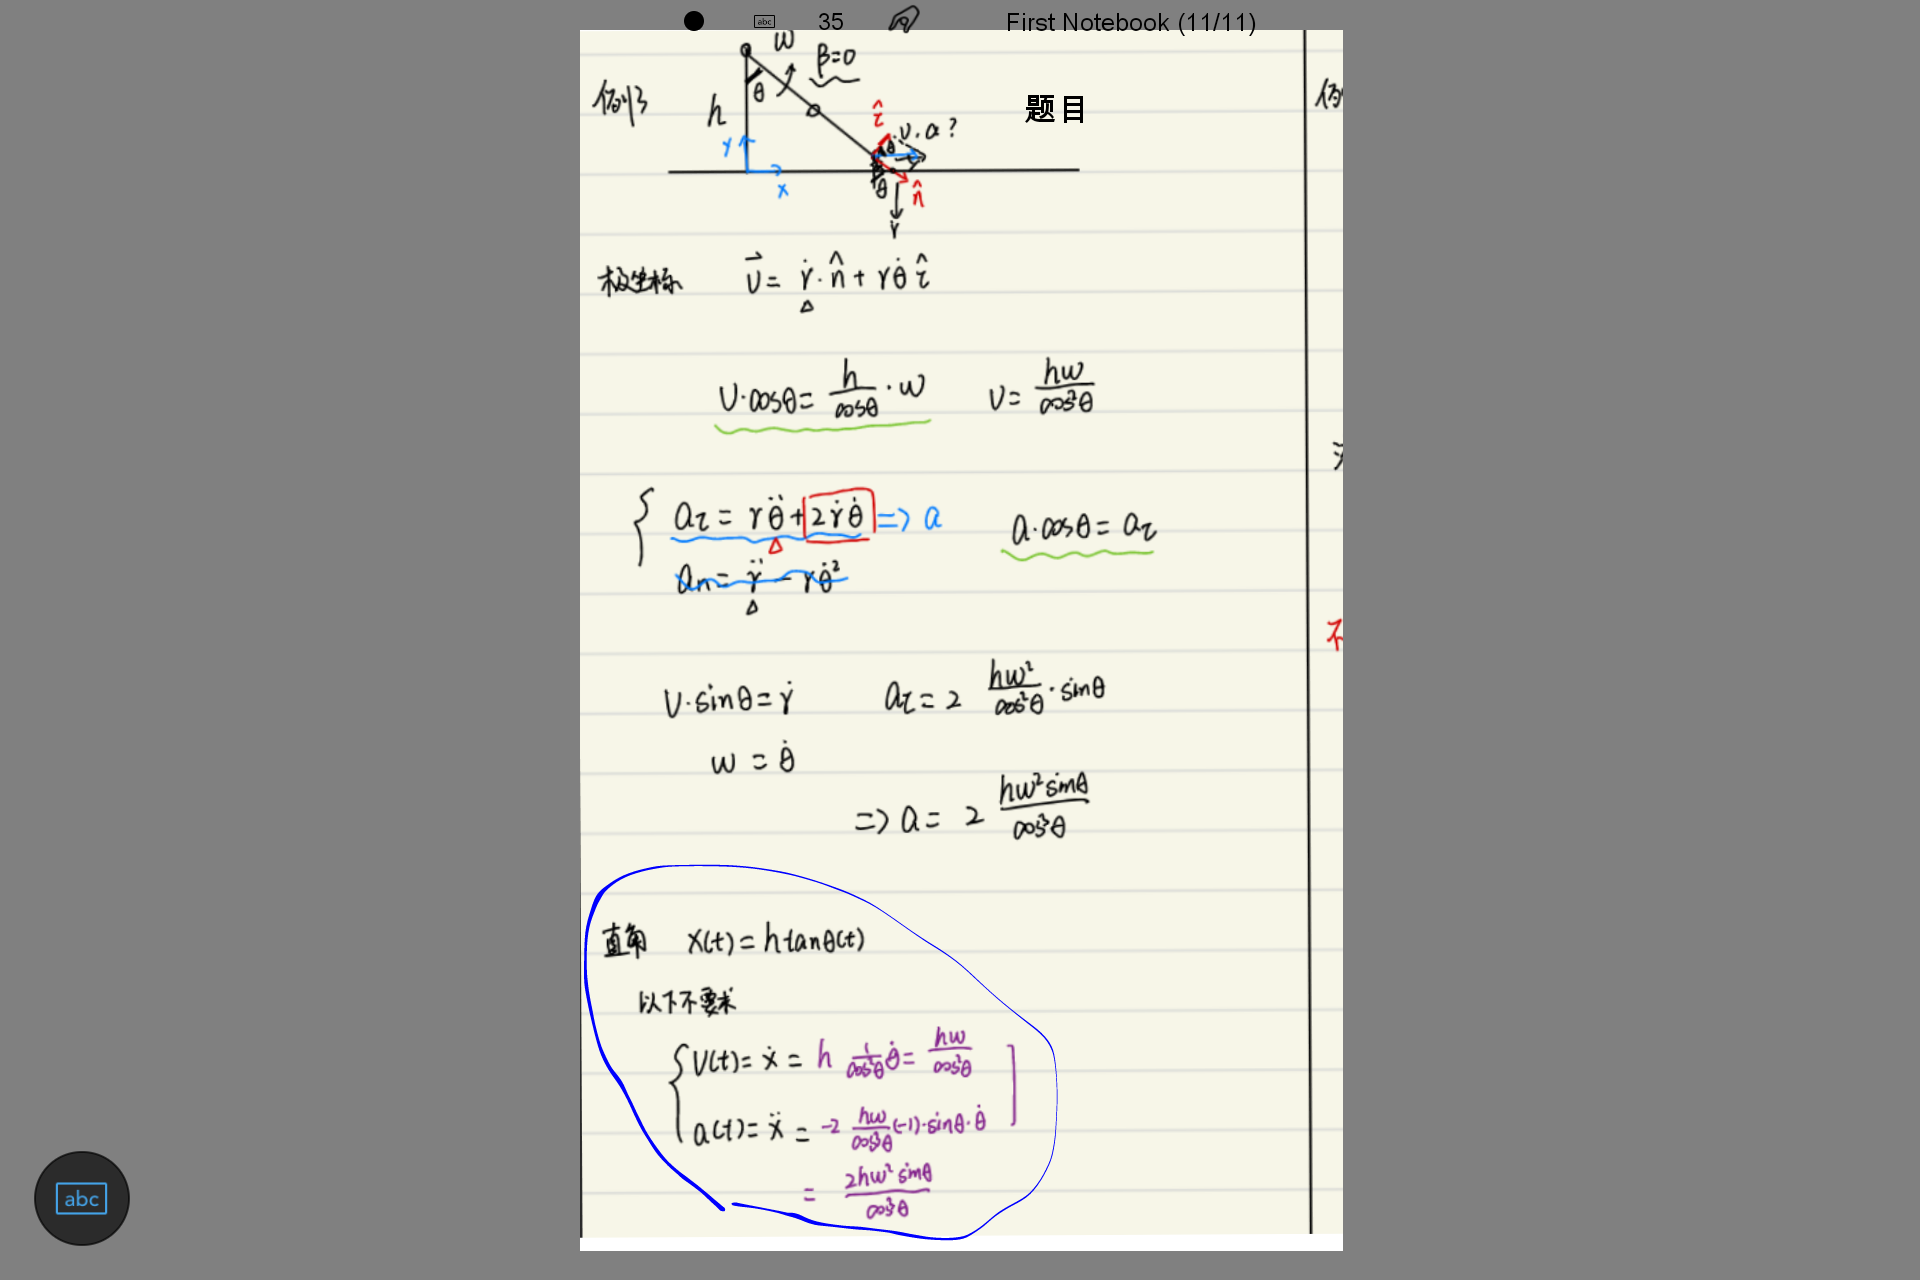 abc 35 First Notebook (11/11)
例3 h θ ω β=0 题目
τ̂ v.a?
y x θ n̂
r
极坐标 v⃗ = ṙ·n̂ + rθ̇ τ̂
v·cosθ = h/cosθ · ω v = hω/cos²θ
{ aτ = rθ̈ + 2ṙθ̇ => a a·cosθ = aτ
an = r̈ - rθ̇²
v·sinθ = ṙ aτ = 2 hω²/cos²θ · sinθ
ω = θ̇
=> a = 2 hω²sinθ/cos³θ
直角 x(t) = h tanθ(t)
以下不要求
{ v(t) = ẋ = h 1/cos²θ θ̇ = hω/cos²θ ]
a(t) = ẍ = -2 hω/cos³θ (-1)·sinθ·θ̇
= 2hω² sinθ/cos³θ
不
abc